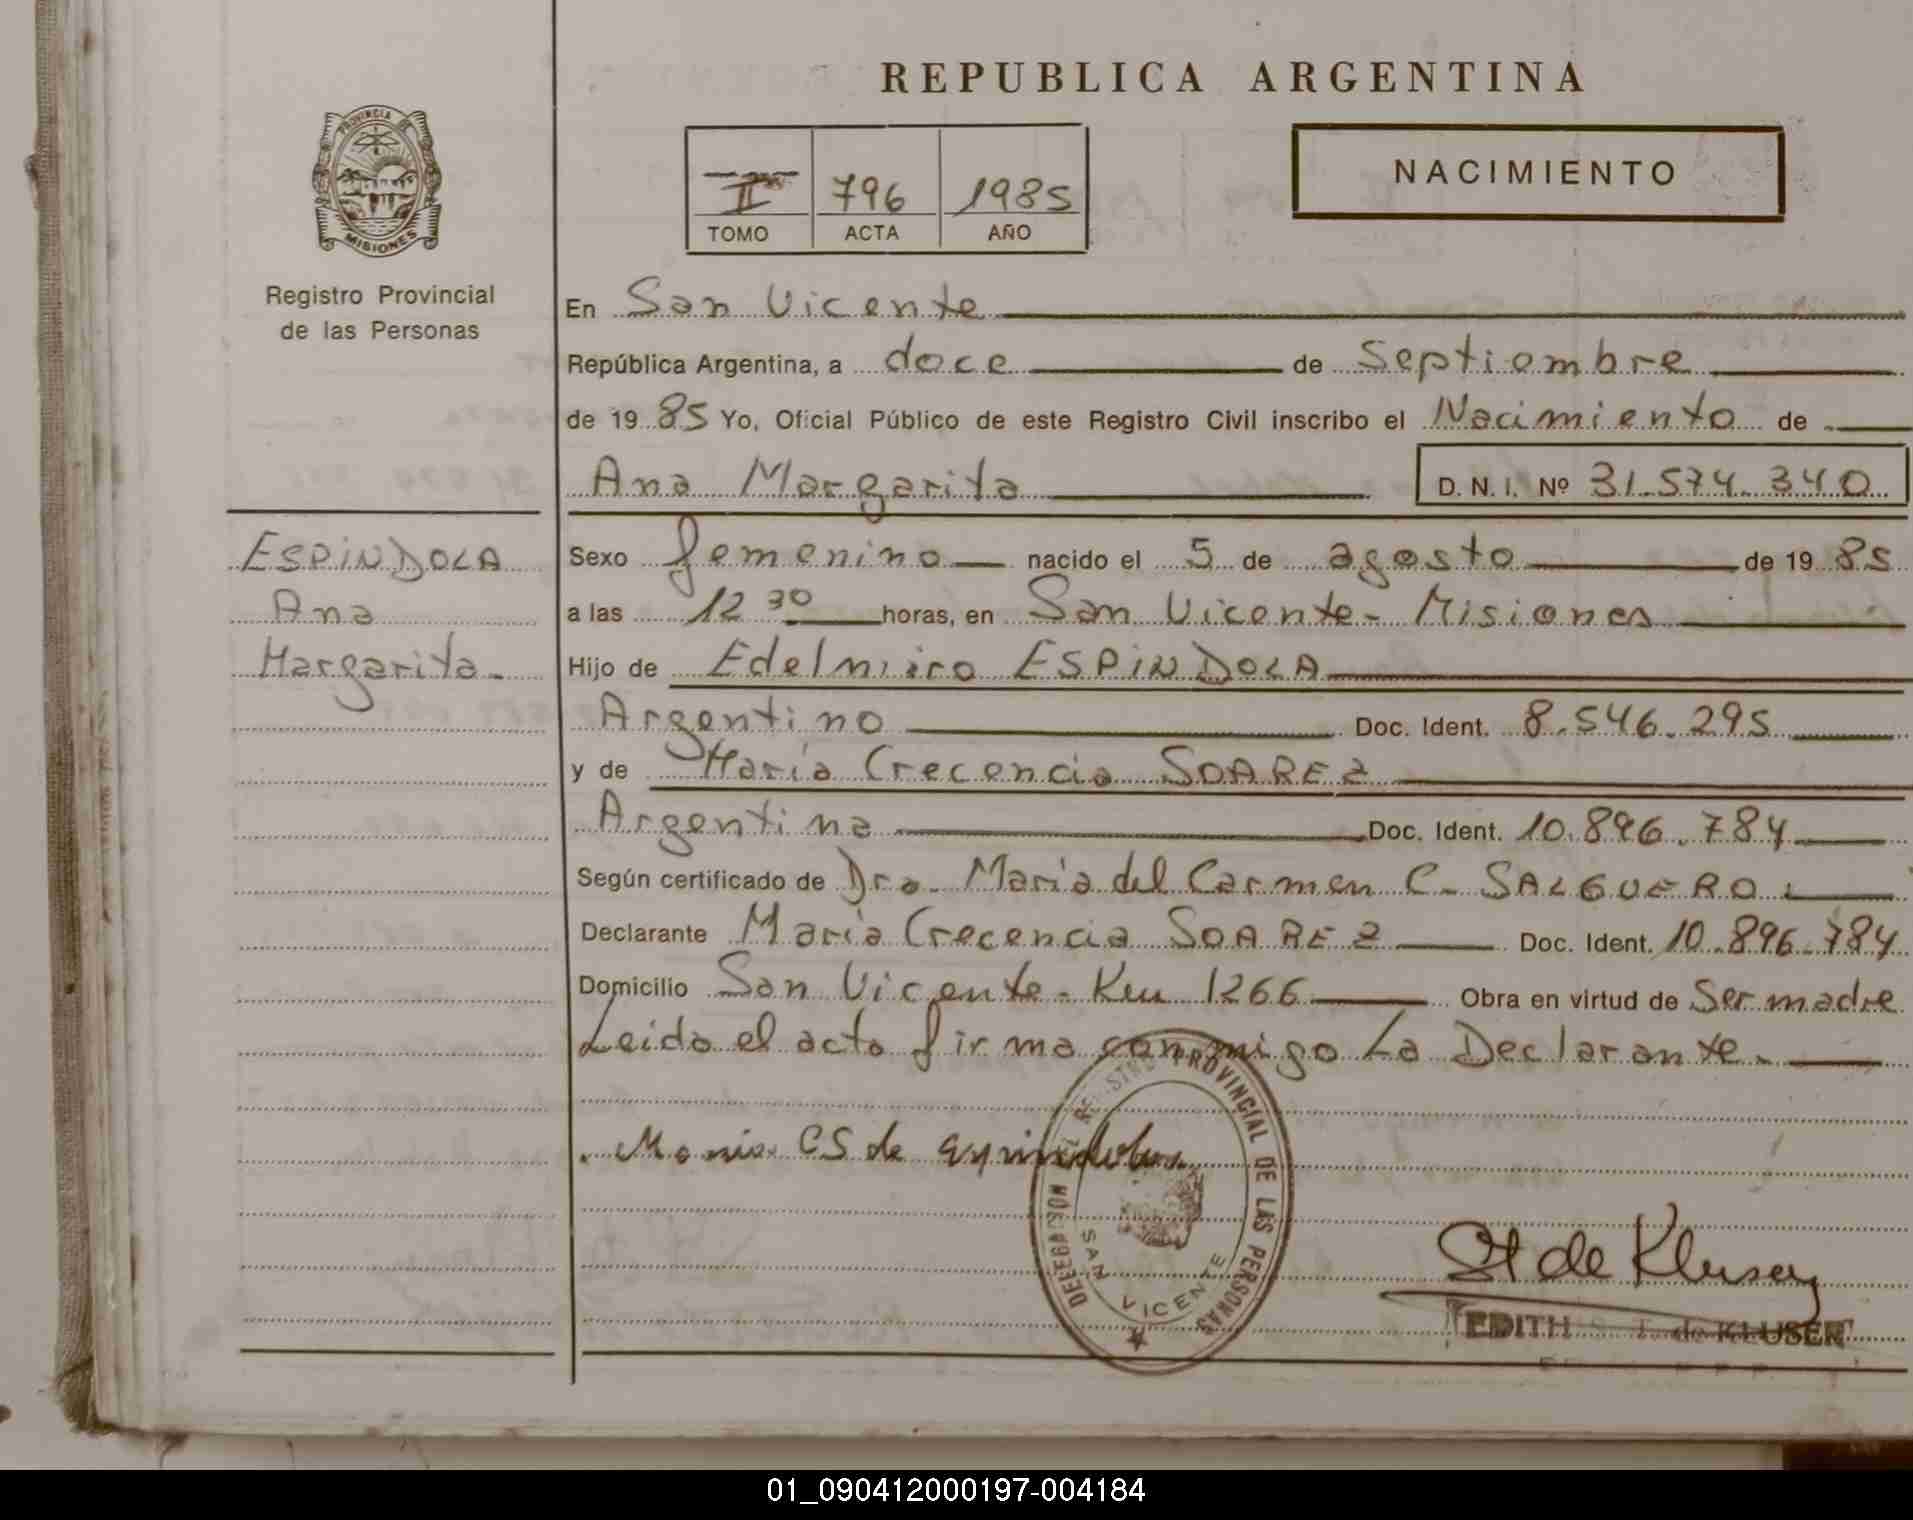 REPUBLICA ARGENTINA
PROVINCIA DE
MISIONES
Registro Provincial
de las Personas
II 796 1985
TOMO ACTA AÑO
NACIMIENTO
En San Vicente
República Argentina, a doce de Septiembre
de 1985 Yo, Oficial Público de este Registro Civil inscribo el Nacimiento de
Ana Margarita D. N. I. Nº 31.574.340
ESPINDOLA
Ana
Margarita.
Sexo femenino nacido el 5 de agosto de 1985
a las 12 30 horas, en San Vicente - Misiones
Hijo de Edelmiro ESPINDOLA
Argentino Doc. Ident. 8.546.295
y de María Crecencia SOAREZ
Argentina Doc. Ident. 10.896.784
Según certificado de Dra. María del Carmen C. SALGUERO
Declarante María Crecencia SOAREZ Doc. Ident. 10.896.784
Domicilio San Vicente - Km 1266 Obra en virtud de Ser madre
Leida el acta firma conmigo La Declarante.
DELEGACION REGISTRO PROVINCIAL DE LAS PERSONAS
SAN VICENTE
Maria CS de
St de Kluser
EDITH S. T. de KLUSER
01_090412000197-004184